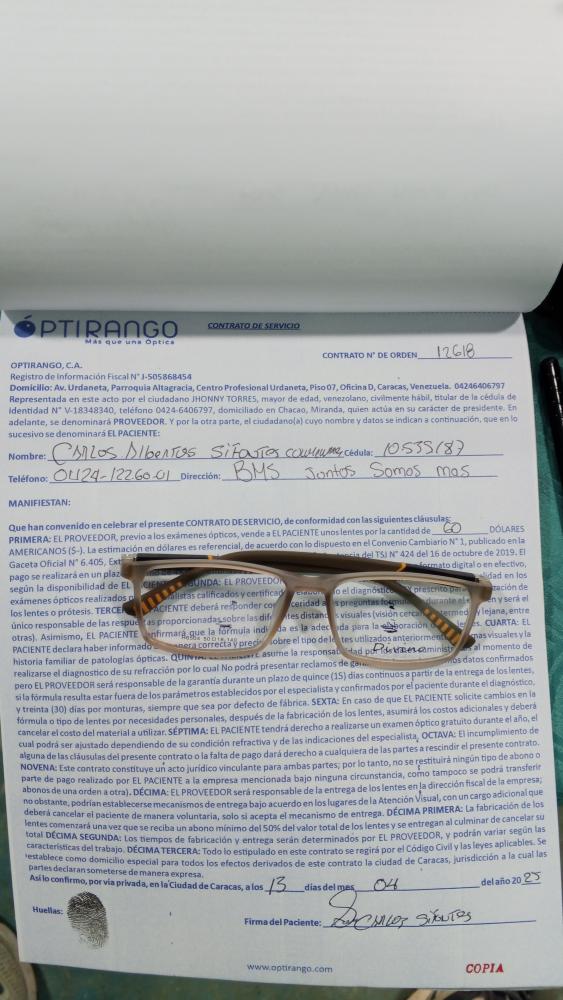 ÓPTIRANGO
Más que una Óptica
CONTRATO DE SERVICIO
CONTRATO N° DE ORDEN 12618
OPTIRANGO, C.A.
Registro de Información Fiscal N° J-505868454
Domicilio: Av. Urdaneta, Parroquia Altagracia, Centro Profesional Urdaneta, Piso 07, Oficina D, Caracas, Venezuela. 04246406797
Representada en este acto por el ciudadano JHONNY TORRES, mayor de edad, venezolano, civilmente hábil, titular de la cédula de
identidad N° V-18348340, teléfono 0424-6406797, domiciliado en Chacao, Miranda, quien actúa en su carácter de presidente. En
adelante, se denominará PROVEEDOR. Y por la otra parte, el ciudadano(a) cuyo nombre y datos se indican a continuación, que en lo
sucesivo se denominará EL PACIENTE:
Nombre: CARLOS Albertos Sifontes Cédula: 10555187
Teléfono: 0424-12260-01 Dirección: BMS Jontos Somos mas
MANIFIESTAN:
Que han convenido en celebrar el presente CONTRATO DE SERVICIO, de conformidad con las siguientes cláusulas:
PRIMERA: EL PROVEEDOR, previo a los exámenes ópticos, vende a EL PACIENTE unos lentes por la cantidad de 60 DÓLARES
AMERICANOS ($-). La estimación en dólares es referencial, de acuerdo con lo dispuesto en el Convenio Cambiario N° 1, publicado en la
Gaceta Oficial N° 6.405, del TSJ N° 424 del 16 de octubre de 2019. El
pago se realizará en un plazo formato digital o en efectivo,
según la disponibilidad de EL PACIENTE. SEGUNDA: EL PROVEEDOR
exámenes ópticos realizados calificados y el diagnóstico
los lentes o prótesis. TERCERA: EL PACIENTE deberá responder preguntas durante el y será el
único responsable de las proporcionadas sobre las distancias visuales (visión cercana, lejana, entre
otras). Asimismo, EL PACIENTE confirmará que la fórmula es la para la CUARTA: EL
PACIENTE declara haber informado manera correcta y sobre el tipo de lentes utilizados anteriormente, visuales y la
historia familiar de patologías ópticas. QUINTA: asume la al momento de
realizarse el diagnostico de su refracción por lo cual No podrá presentar reclamos de datos confirmados
pero EL PROVEEDOR será responsable de la garantía durante un plazo de quince (15) días continuos a partir de la entrega de los lentes,
si la fórmula resulta estar fuera de los parámetros establecidos por el especialista y confirmados por el paciente durante el diagnóstico,
y treinta (30) días por monturas, siempre que sea por defecto de fábrica. SEXTA: En caso de que EL PACIENTE solicite cambios en la
fórmula o tipo de lentes por necesidades personales, después de la fabricación de los lentes, asumirá los costos adicionales y deberá
cancelar el costo del material a utilizar. SÉPTIMA: EL PACIENTE tendrá derecho a realizarse un examen óptico gratuito durante el año, el
cual podrá ser ajustado dependiendo de su condición refractiva y de las indicaciones del especialista. OCTAVA: El incumplimiento de
alguna de las cláusulas del presente contrato o la falta de pago dará derecho a cualquiera de las partes a rescindir el presente contrato.
NOVENA: Este contrato constituye un acto jurídico vinculante para ambas partes; por lo tanto, no se restituirá ningún tipo de abono o
parte de pago realizado por EL PACIENTE a la empresa mencionada bajo ninguna circunstancia, como tampoco se podrá transferir
abonos de una orden a otra). DÉCIMA: EL PROVEEDOR será responsable de la entrega de los lentes en la dirección fiscal de la empresa;
no obstante, podrían establecerse mecanismos de entrega bajo acuerdo en los lugares de la Atención Visual, con un cargo adicional que
deberá cancelar el paciente de manera voluntaria, solo si acepta el mecanismo de entrega. DÉCIMA PRIMERA: La fabricación de los
lentes comenzará una vez que se reciba un abono mínimo del 50% del valor total de los lentes y se entregan al culminar de cancelar su
total DÉCIMA SEGUNDA: Los tiempos de fabricación y entrega serán determinados por EL PROVEEDOR, y podrán variar según las
características del trabajo. DÉCIMA TERCERA: Todo lo estipulado en este contrato se regirá por el Código Civil y las leyes aplicables. Se
establece como domicilio especial para todos los efectos derivados de este contrato la ciudad de Caracas, jurisdicción a la cual las
partes declaran someterse de manera expresa.
Así lo confirmo, por vía privada, en la Ciudad de Caracas, a los 13 días del mes 04 del año 2025
Huellas:
Firma del Paciente: CARLOS Sifontes
www.optirango.com
COPIA